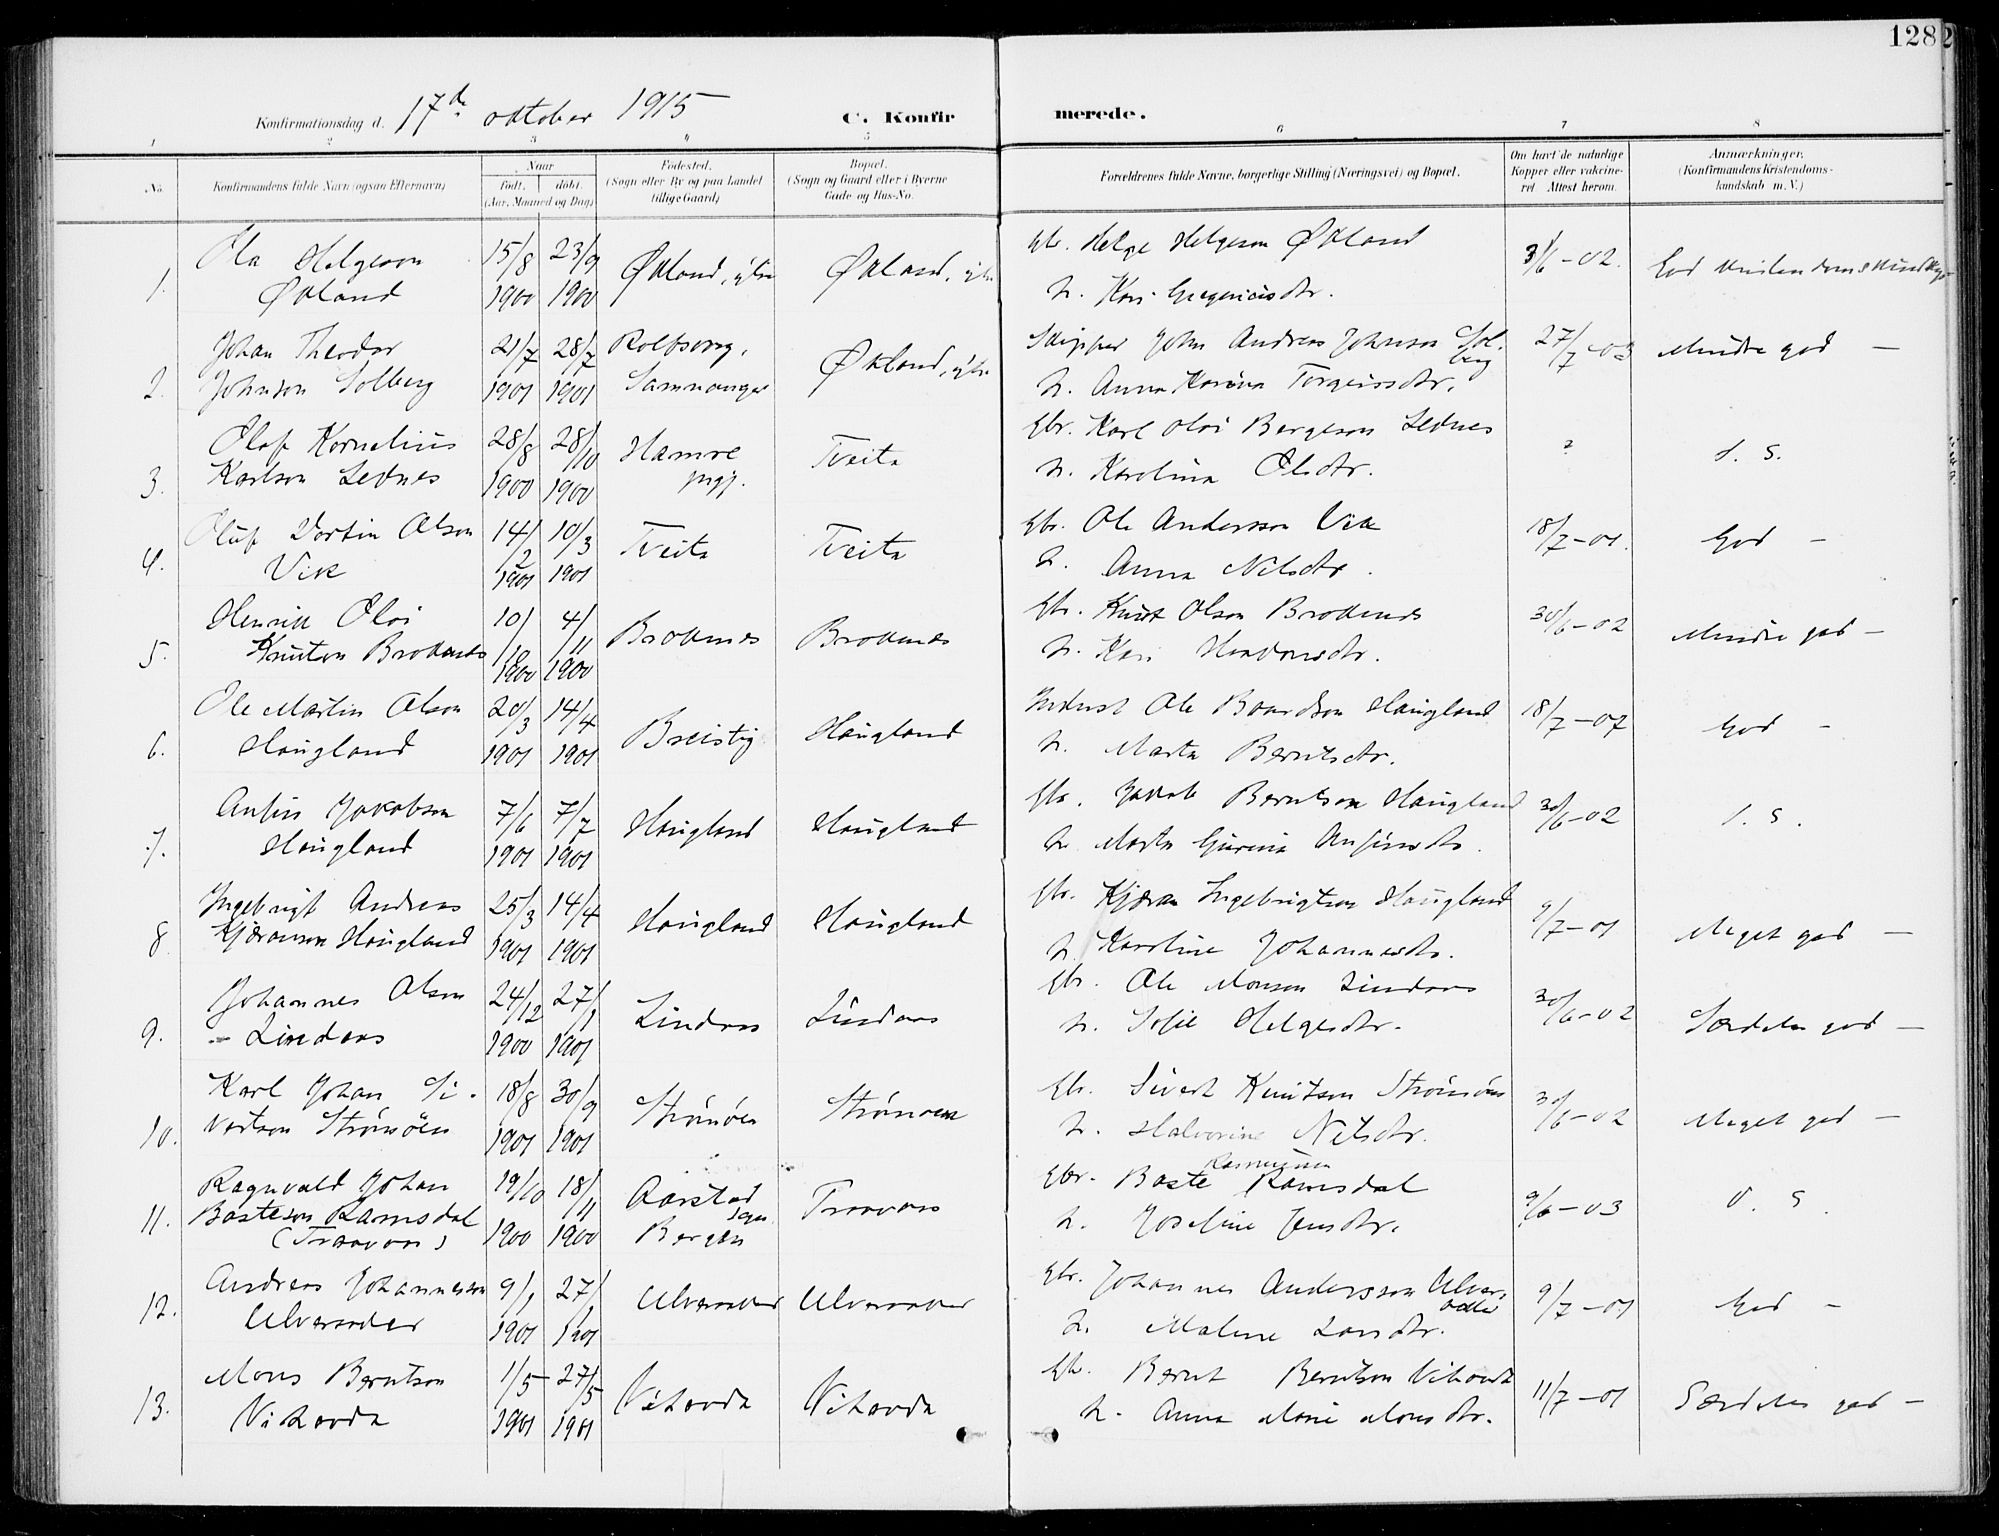 128
Konfirmationsdag d. 17de oktober 1915
C. Konfirmerede.
1 2 3 4 5 6 7 8
No. Konfirmandens fulde Navn (ogsaa Efternavn) Naar født. døbt. (Aar, Maaned og Dag) Fødested. (Sogn eller By og paa Landet tillige Gaard) Bopæl. (Sogn og Gaard eller i Byerne Gade og Hus-No. Forældrenes fulde Navne, borgerlige Stilling (Næringsvei) og Bopæl. Om havt de naturlige Kopper eller vakcineret Attest herom. Anmærkninger. (Konfirmandens Kristendomskundskab m. V.)
1. Ola Helgeson 15/8 23/9 Økland, ytre Økland, ytre Gbr. Helge Helgeson Økland 3/6-02. God kristendomskundskap
Økland 1900 1900 h. Kari Gregoriusdtr.
2. Johan Theodor 21/7 28/7 Rolfsvaag, Økland, ytre Skipper John Andreas Johnson Solberg 27/7-03 Mindre god —
Johnson Solberg 1901 1901 Samnanger h. Anna Karina Torgeirsdtr.
3. Olaf Kornelius 28/8 28/10 Hamre Tveita Gbr. Karl Olai Bergeson Lednes ? d. s.
Karlson Lednes 1900 1900 prgj. h. Karolina Olsdtr.
4. Oluf Martin Olson 14/2 10/3 Tveita Tveita Gbr. Ole Andersson Vik 18/7-01. God —
Vik 1901 1901 h. Anna Nilsdtr.
5. Henrik Olai 10/10 4/11 Brokenes Brokenes Gbr. Knut Olson Brokenes 30/6-02 Mindre god —
Knutson Brokenes 1900 1900 h. Kari
6. Ole Martin Olson 20/3 14/4 Breistig Haugland Indust Ole Baardson Haugland 18/7-07 God —
Haugland 1901 1901 h. Marta Berntsdtr.
7. Anfin Jakobson 7/6 7/7 Haugland Haugland Gbr. Jakob Berntson Haugland 30/6-02 d. s.
Haugland 1901 1901 h. Marta Gurina Anfinsdtr.
8. Ingebrigt Andreas 25/3 14/4 Haugland Haugland Gbr. Kjæran Ingebrigtson Haugland 9/7-01 Meget god —
Kjæranson Haugland 1901 1901 h. Karoline Johannesdtr.
9. Johannes Olson 24/12 27/1 Lindaas Lindaas Gbr. Ole Monson Lindaas 30/6-02 Særdeles god —
Lindaas 1900 1901 h. Sofie Helgesdtr.
10. Karl Johan Si- 18/8 30/9 Strømøen Strømøen Gbr. Sivert Knutson Strømøen 30/6-02 Meget god —
vertson Strømøen 1901 1901 h. Halvorine Nilsdtr.
11. Ragnvald Johan 19/10 18/11 Aarstad sogn Traavaas Gbr. Baste Rasmussen Ramsdal 9/6-03 d. s.
Basteson Ramsdal 1900 1900 Bergen h. Joseline Jensdtr.
(Traavaas)
12. Andreas Johannesson 9/1 27/1 Ulversøder Ulversøder Gbr. Johannes Andersson Ulversøder 9/7-01 God —
Ulversøder 1901 1901 h. Malene Larsdtr.
13. Mons Berntson 1/5 27/5 Vikavda Vikavda Gbr. Bernt Berntson Vikavda 11/7-01 Særdeles god —
Vikavda 1901 1901 h. Anna Marie Monsdtr.